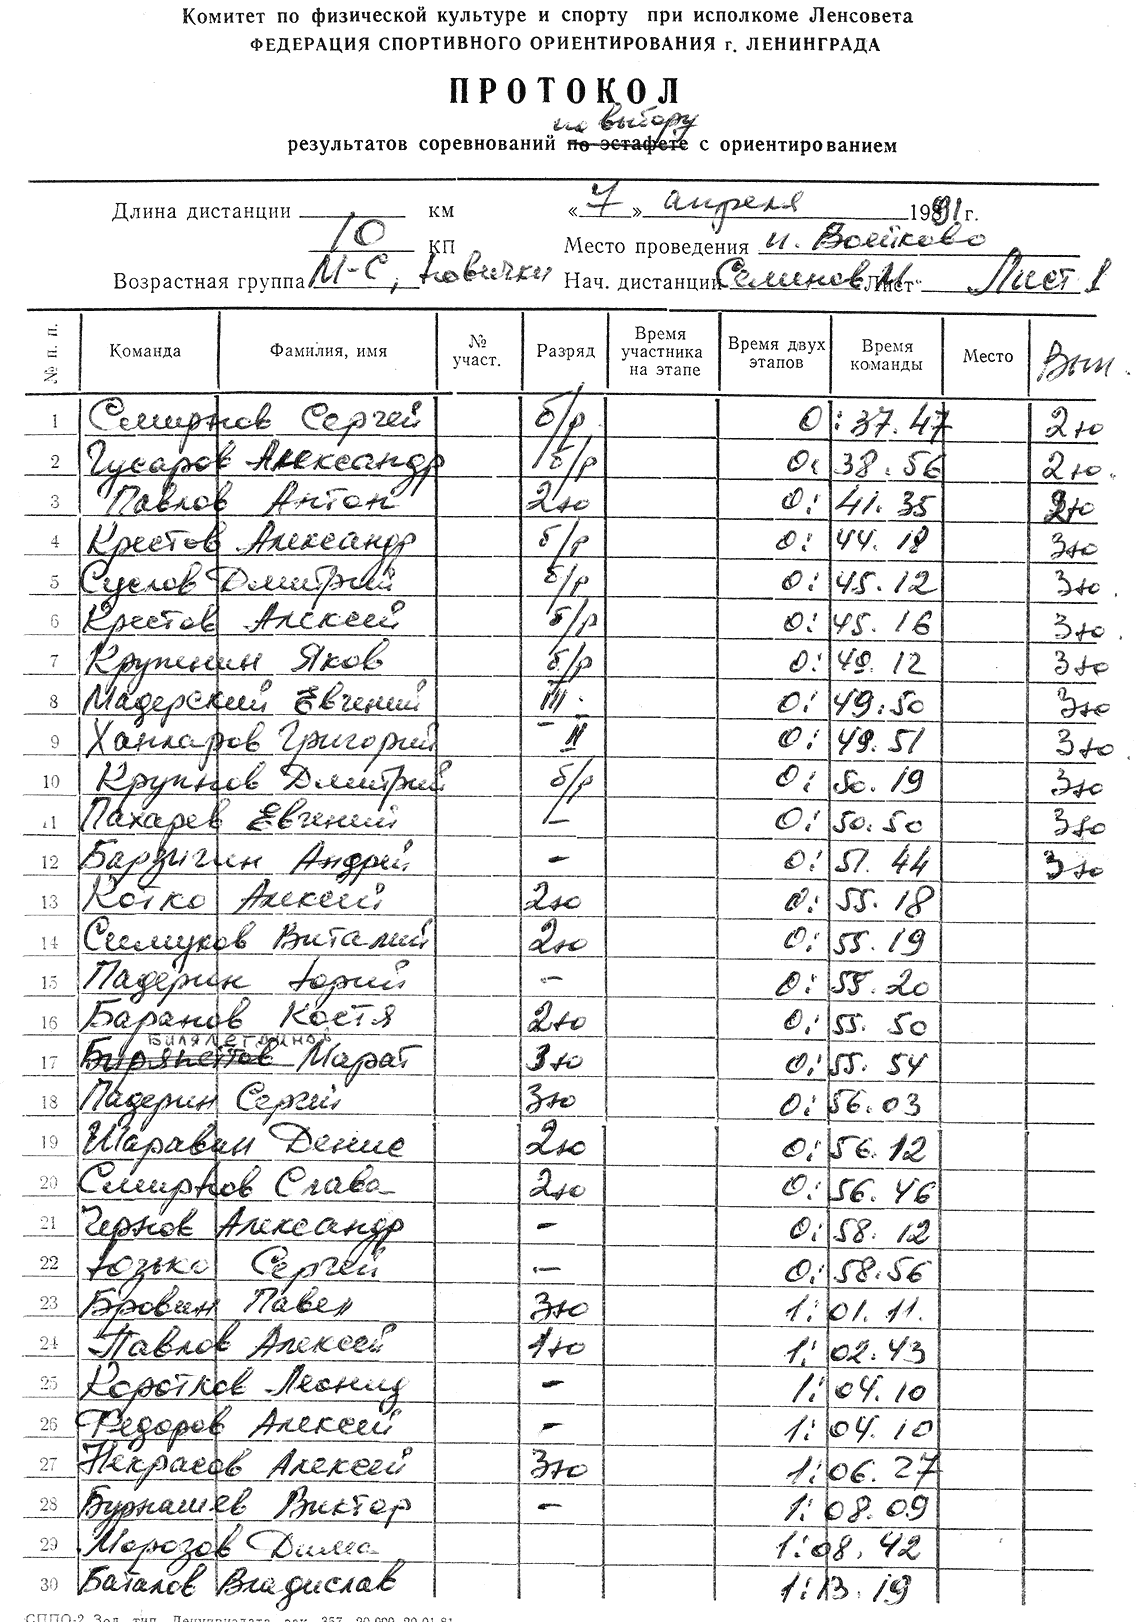 Комитет по физической культуре и спорту при исполкоме Ленсовета
ФЕДЕРАЦИЯ СПОРТИВНОГО ОРИЕНТИРОВАНИЯ г. ЛЕНИНГРАДА
ПРОТОКОЛ
по выбору
результатов соревнований по эстафете с ориентированием
Длина дистанции км «7» апреля 1991 г.
10 КП Место проведения п. Войково
Возрастная группа М-С, новички Нач. дистанции Семенов М Лист Лист 1
№ п. п. Команда Фамилия, имя № участ. Разряд Время участника на этапе Время двух этапов Время команды Место Вып.
1 Смирнов Сергей б/р 0:37.47 2ю
2 Гусаров Александр б/р 0:38.56 2ю.
3 Павлов Антон 2ю 0:41.35 2ю
4 Крестов Александр б/р 0:44.18 3ю
5 Суслов Дмитрий б/р 0:45.12 3ю
6 Крестов Алексей б/р 0:45.16 3ю
7 Крупенин Яков б/р 0:49.12 3ю
8 Мадерский Евгений III 0:49:50 3ю
9 Ханларов Григорий – II 0:49.51 3ю
10 Крупнов Дмитрий б/р 0:50.19 3ю
11 Пахарев Евгений – 0:50.50 3ю
12 Барзыгин Андрей – 0:51.44 3ю
13 Котко Алексей 2ю 0:55.18
14 Симуков Виталий 2ю 0:55.19
15 Падерин Юрий – 0:55.20
16 Баранов Костя 2ю 0:55.50
Билялетдинов
17 Марат 3ю 0:55.54
18 Падерин Сергей 3ю 0:56.03
19 Шараван Денис 2ю 0:56.12
20 Смирнов Слава 2ю 0:56.46
21 Чернов Александр – 0:58.12
22 Юзько Сергей – 0:58.56
23 Бровин Павел 3ю 1:01.11.
24 Павлов Алексей 1ю 1:02.43
25 Коротков Леонид – 1:04.10
26 Федоров Алексей – 1:04.10
27 Некрасов Алексей 3ю 1:06.27
28 Бурнашев Виктор – 1:08.09
29 Морозов Дима 1:08.42
30 Баталов Владислав 1:13.19